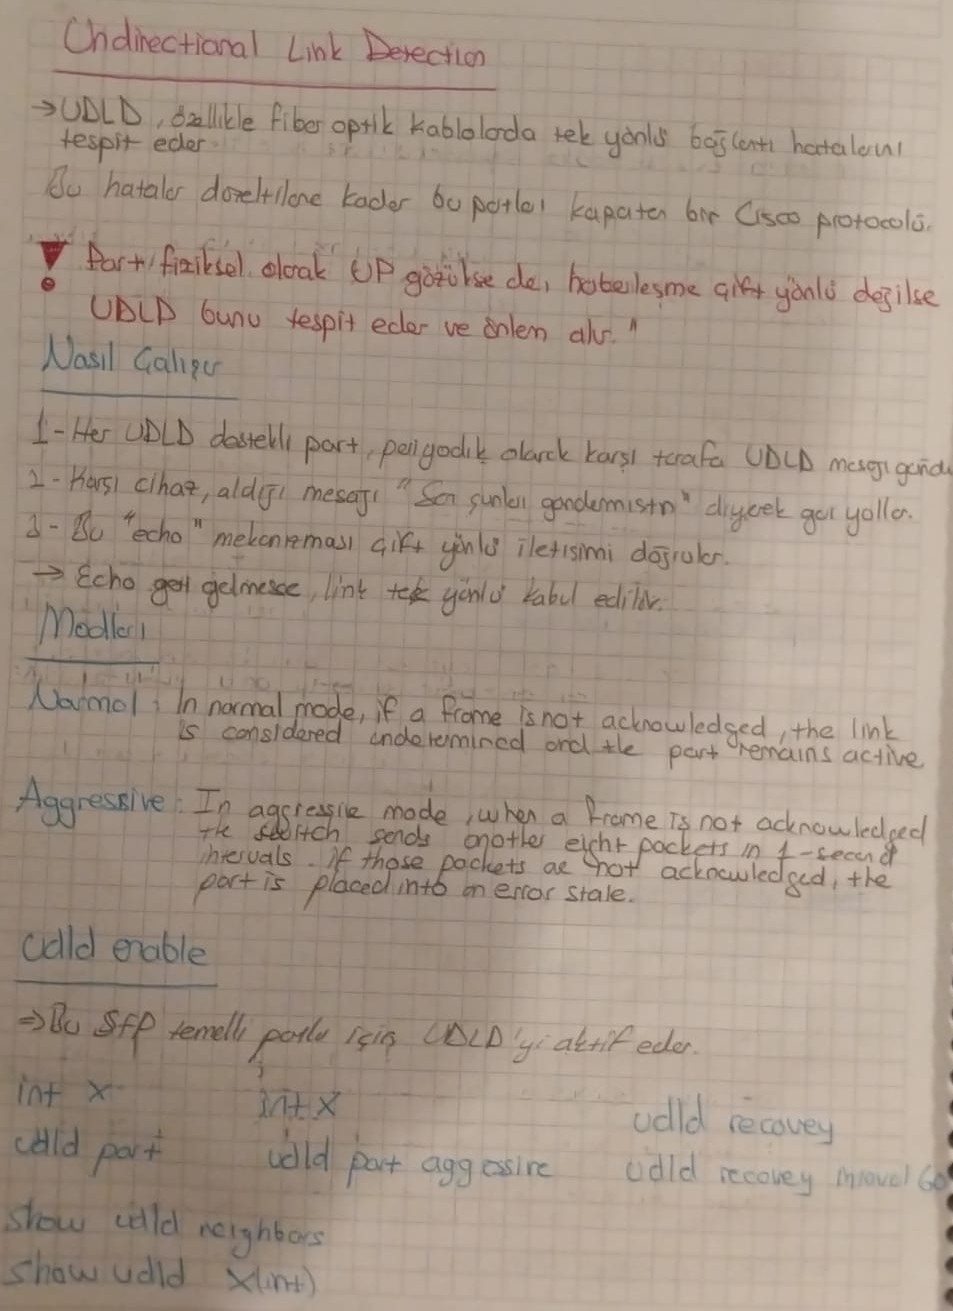 Unidirectional Link Detection
→ UDLD, özellikle fiber optik kablolarda tek yönlü bağlantı hatalarını
tespit eder.
Bu hatalar düzeltilene kadar bu portları kapatan bir Cisco protocolü.
! Port fiziksel olarak UP gözükse de, haberleşme çift yönlü değilse
UDLD bunu tespit eder ve önlem alır."
Nasıl Çalışır
1- Her UDLD destekli port, periyodik olarak karşı tarafa UDLD mesajı
2- Karşı cihaz, aldığı mesajı "Sen şunları göndermiştin" diyerek geri yollar.
3- Bu "echo" mekanizması çift yönlü iletişimi doğrular.
→ Echo geri gelmezse, link tek yönlü kabul edilir.
Modları
Normal: In normal mode, if a frame is not acknowledged, the link
is considered undetermined and the port remains active
Aggressive: In aggressive mode, when a frame is not acknowledged
the switch sends another eight packets in 1-second
intervals. If those packets are not acknowledged, the
port is placed into an error state.
udld enable
⇒ Bu SFP temelli portlar için UDLD'yi aktif eder.
int x int x udld recovery
udld port udld port aggressive udld recovery interval 60
show udld neighbors
show udld x(int)